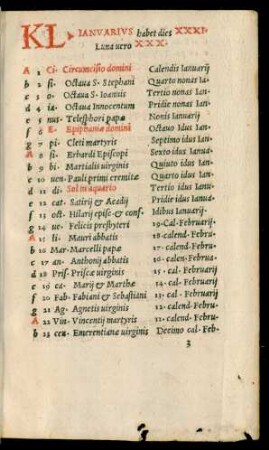 KL IANVARIVS habet dies XXXI.
Luna vero XXX.
A 1 Ci- Circumcisio domini Calendis Ianuarij
b 2 si- Octava S. Stephani Quarto nonas Ia-
c 3 o- Octava S. Ioannis Tertio nonas Ian-
d 4 ia- Octava Innocentum Pridie nonas Ian-
e 5 nus- Telesphori papæ Nonis Ianuarij
f 6 E- Epiphaniæ domini Octavo idus Ian-
g 7 pi- Cleti martyris Septimo idus Ian-
A 8 si- Erhardi Episcopi Sexto idus Ianua-
b 9 bi- Martialis virginis Quinto idus Ian-
c 10 uen- Pauli primi eremitæ Quarto idus Ian-
d 11 di- Sol in aquario Tertio idus Ianu-
e 12 cat- Satirij & Acedij Pridie idus Ianua-
f 13 oct- Hilarij episc- & conf- Idibus Ianuarij-
g 14 ue- Felicis presbyteri 19-Cal-Februarij-
A 15 li- Mauri abbatis 18-calend-Febru-
b 16 Mar- Marcelli papæ 17-calen-Febru-
c 17 an- Anthonij abbatis 16-calen-Februa-
d 18 Pris- Priscæ virginis 15-cal-Februarij
e 19 ca- Marij & Marthæ 14-cal-Februarij
f 20 Fab- Fabiani & Sebastiani 13-cal-Februarij
g 21 Ag- Agnetis virginis 12-calend-Febru-
A 22 Vin- Vincentij martyris 11-calend-Febru-
b 23 cen- Emerentianæ virginis Decimo cal-Feb-
3